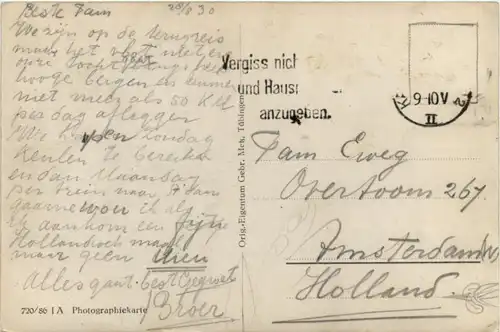 Beste Fam 28/8 30
We zijn op de terugreis
maar het vlot niet
onze tocht gaat langs heel
hooge bergen en kunnen
niet meer als 50 KM
per dag afleggen
We hopen Zondag
Keulen te bereiken
en dan Maandag
per trein naar
gaarne wou ik als
ik aankom een fijn
Hollandsch maal
maar geen uien
Alles gaat best Gegroet
Broer
720/86 I A Photographiekarte
Orig.-Eigentum Gebr. Metz, Tübingen
Vergiss nicht
und Haus
anzugeben.
9-10 V
II
Fam Eweg
Overtoom 267
Amsterdam W
Holland